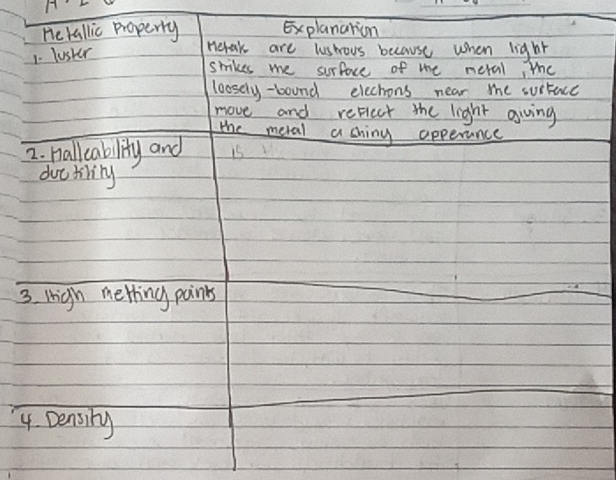 Metallic Property
Explanation
1. luster
Metals are lustrous because when light
strikes the surface of the metal, the
loosely-bound electrons near the surface
move and reflect the light giving
the metal a shiny apperance
2. Malleability and
ductility
is
3. High melting points
4. Density